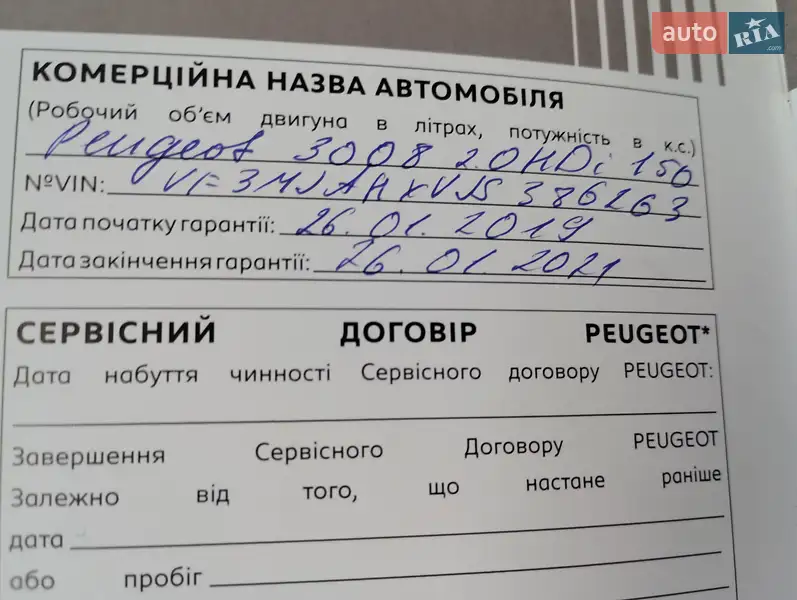 auto RIA .com
КОМЕРЦІЙНА НАЗВА АВТОМОБІЛЯ
(Робочий об'єм двигуна в літрах, потужність в к.с.)
Peugeot 3008 2.0HDi 150
№VIN: VF3MJAHXVJS386263
Дата початку гарантії: 26.01.2019
Дата закінчення гарантії: 26.01.2021
СЕРВІСНИЙ ДОГОВІР PEUGEOT*
Дата набуття чинності Сервісного договору PEUGEOT:
Завершення Сервісного Договору PEUGEOT
Залежно від того, що настане раніше
дата
або пробіг